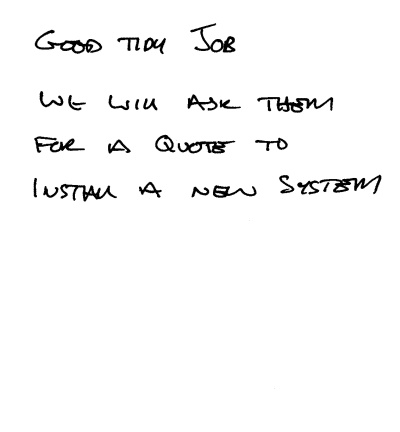 GOOD TIDY JOB
WE WILL ASK THEM
FOR A QUOTE TO
INSTALL A NEW SYSTEM